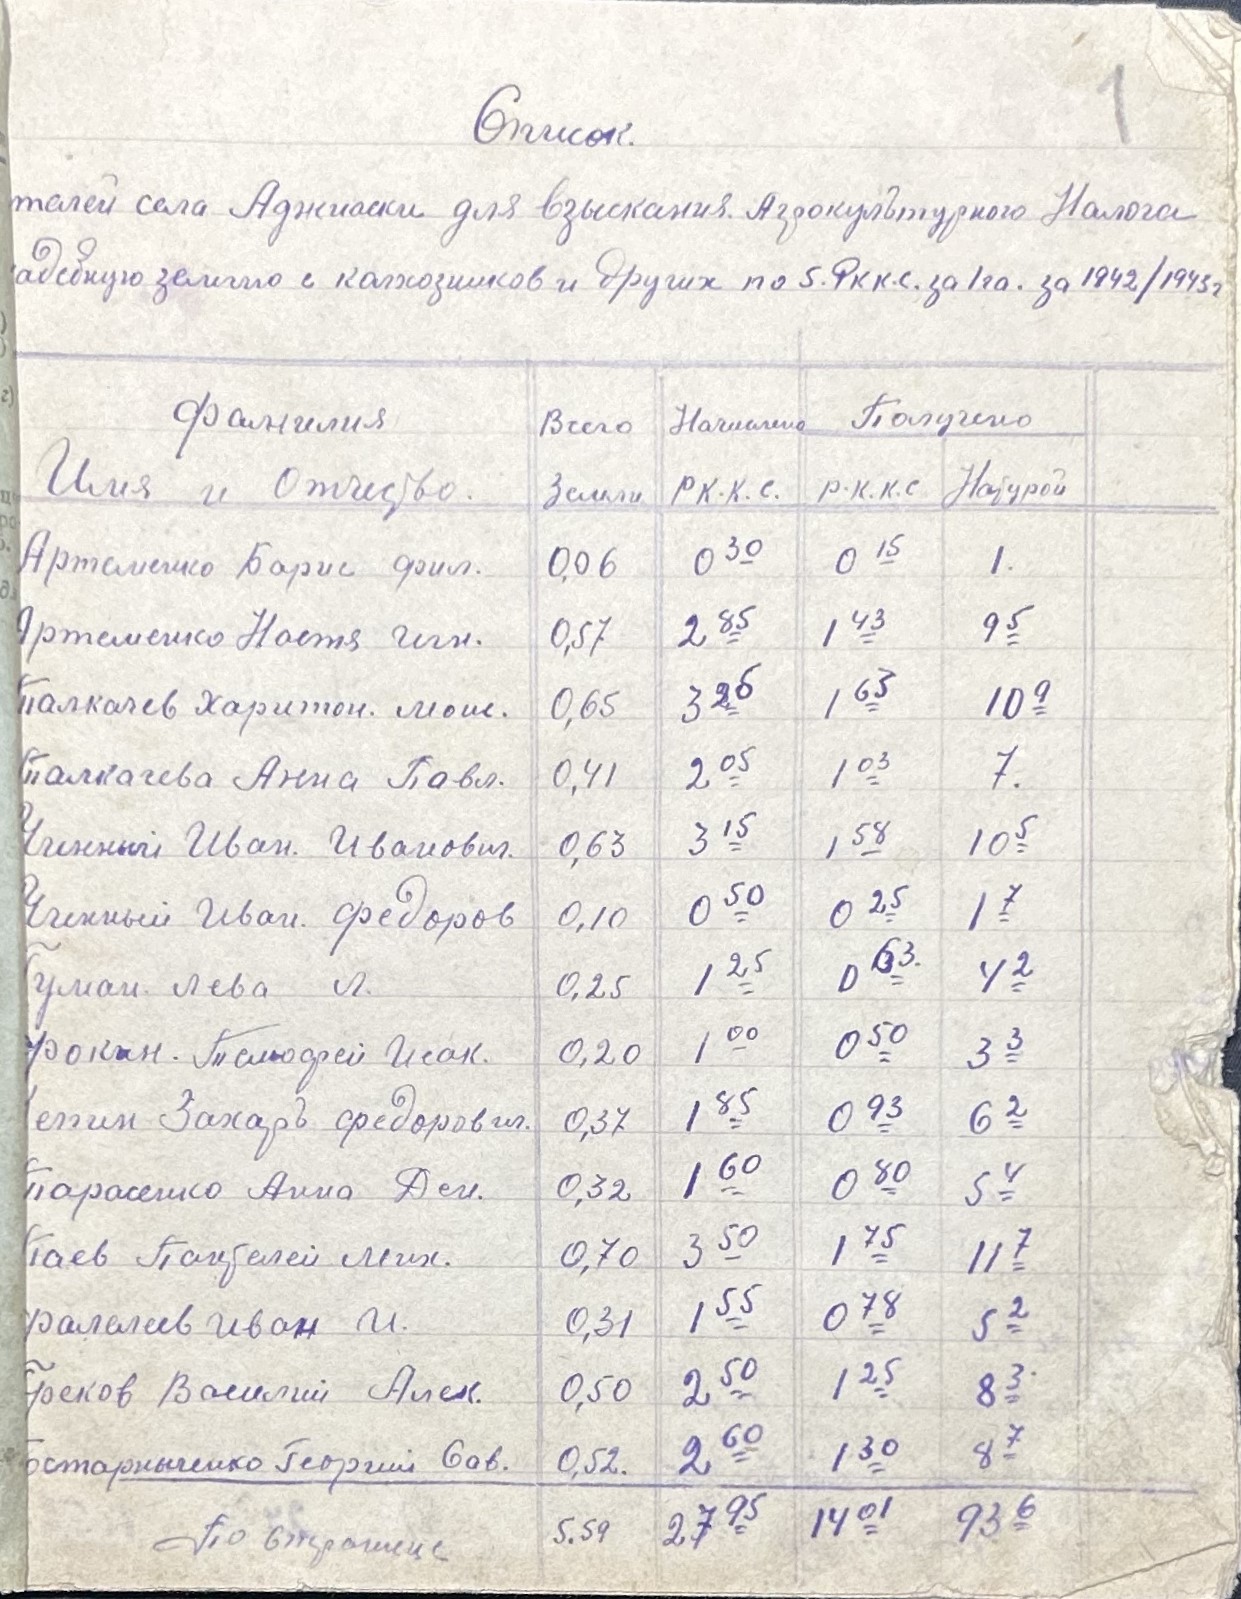 1
Список.
телей села Аджиаски для взыскания Агрокультурного Налога
адебную землю с колхозников и других по 5. Р.К.К.С. за 1 га. за 1942/1943г
Фамилия Всего Начислено Получено
Имя и Отчество. Земли Р К.К.С. Р.К.К.С Натурой
Артеменко Барис Фил. 0,06 0 30 0 15 1.
Артеменко Настя Игн. 0,57 2 85 1 43 9 5
Палкачев Харитон. Моис. 0,65 3 26 1 63 10 9
Палкачева Анна Павл. 0,41 2 05 1 03 7.
Чинный Иван. Иванович. 0,63 3 15 1 58 10 5
Чинный Иван. Федоров 0,10 0 50 0 25 1 7
Гуман. Лева Л. 0,25 1 25 0 63. 4 2
Тимофей Исак. 0,20 1 00 0 50 3 3
Захаръ Федорович. 0,37 1 85 0 93 6 2
Тарасенко Анна Ден. 0,32 1 60 0 80 5 4
Пантелей Мих. 0,70 3 50 1 75 11 7
Фалелеев Иван И. 0,31 1 55 0 78 5 2
Греков Василий Алек. 0,50 2 50 1 25 8 3
Георгий Сав. 0,52. 2 60 1 30 8 7
По странице 5.59 27 95 14 01 93 6